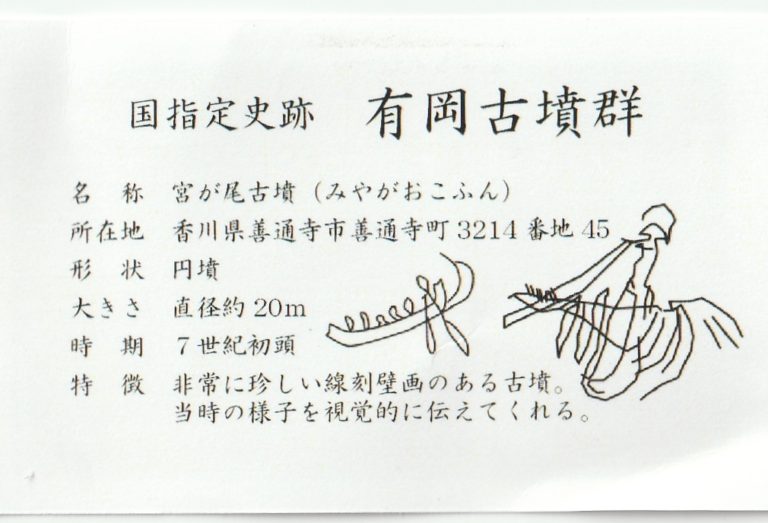 国指定史跡 有岡古墳群
名称 宮が尾古墳（みやがおこふん）
所在地 香川県善通寺市善通寺町3214番地45
形状 円墳
大きさ 直径約20m
時期 7世紀初頭
特徴 非常に珍しい線刻壁画のある古墳。
当時の様子を視覚的に伝えてくれる。